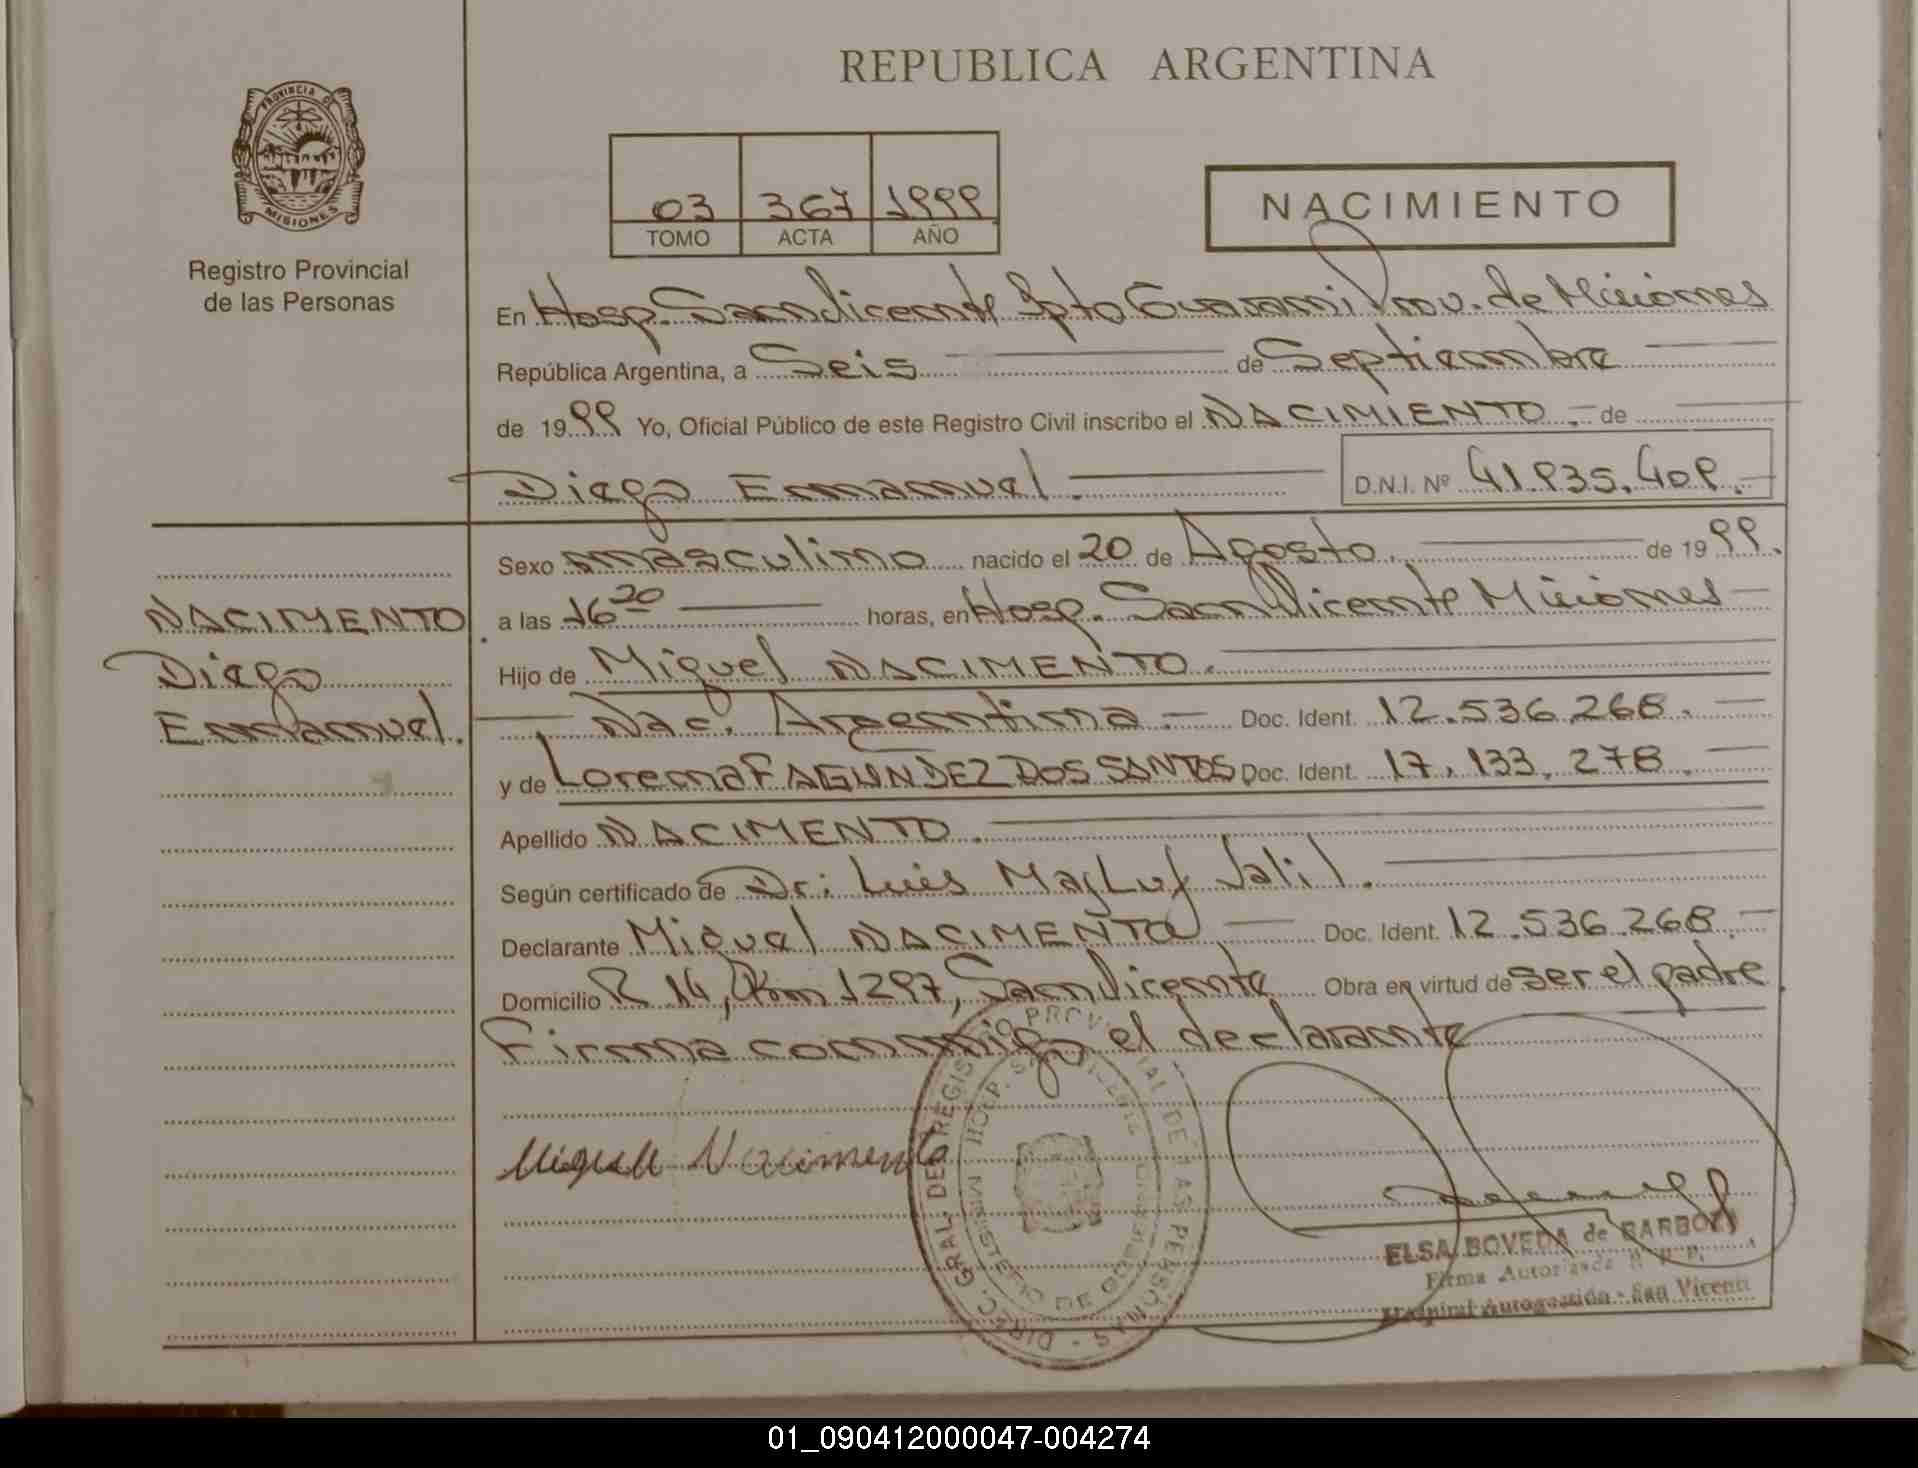 REPUBLICA ARGENTINA
PROVINCIA DE
MISIONES
Registro Provincial
de las Personas
03 367 1999
TOMO ACTA AÑO
NACIMIENTO
En Hosp. San Vicente Dpto Guarani Prov. de Misiones
República Argentina, a Seis de Septiembre
de 1999 Yo, Oficial Público de este Registro Civil inscribo el NACIMIENTO.- de
Diego Emmanuel. D.N.I. Nº 41.935.409.-
Sexo masculino nacido el 20 de Agosto. de 1999.
a las 16 20 horas, en Hosp. San Vicente Misiones
Hijo de Miguel NACIMENTO.
Nac. Argentina.- Doc. Ident. 12.536.268.
y de Lorena FAGUNDEZ DOS SANTOS Doc. Ident. 17.133.278.
Apellido NACIMENTO.
Según certificado de Dr: Luis Majluf Jalil.
Declarante Miguel NACIMENTO Doc. Ident. 12.536.268.
Domicilio R 14, Km 1297, San Vicente Obra en virtud de ser el padre.
Firma conmigo el declarante
NACIMENTO.
Diego
Emmanuel.
Miguel Nacimento
DIREC. GRAL. DEL REGISTRO PROVINCIAL DE LAS PERSONAS
HOSP. SAN VICENTE
MINISTERIO DE GOBIERNO
ELSA BOVEDA de BARBOZA
Firma Autorizada R. P. P.
Hospital Autogestión - San Vicente
01_090412000047-004274